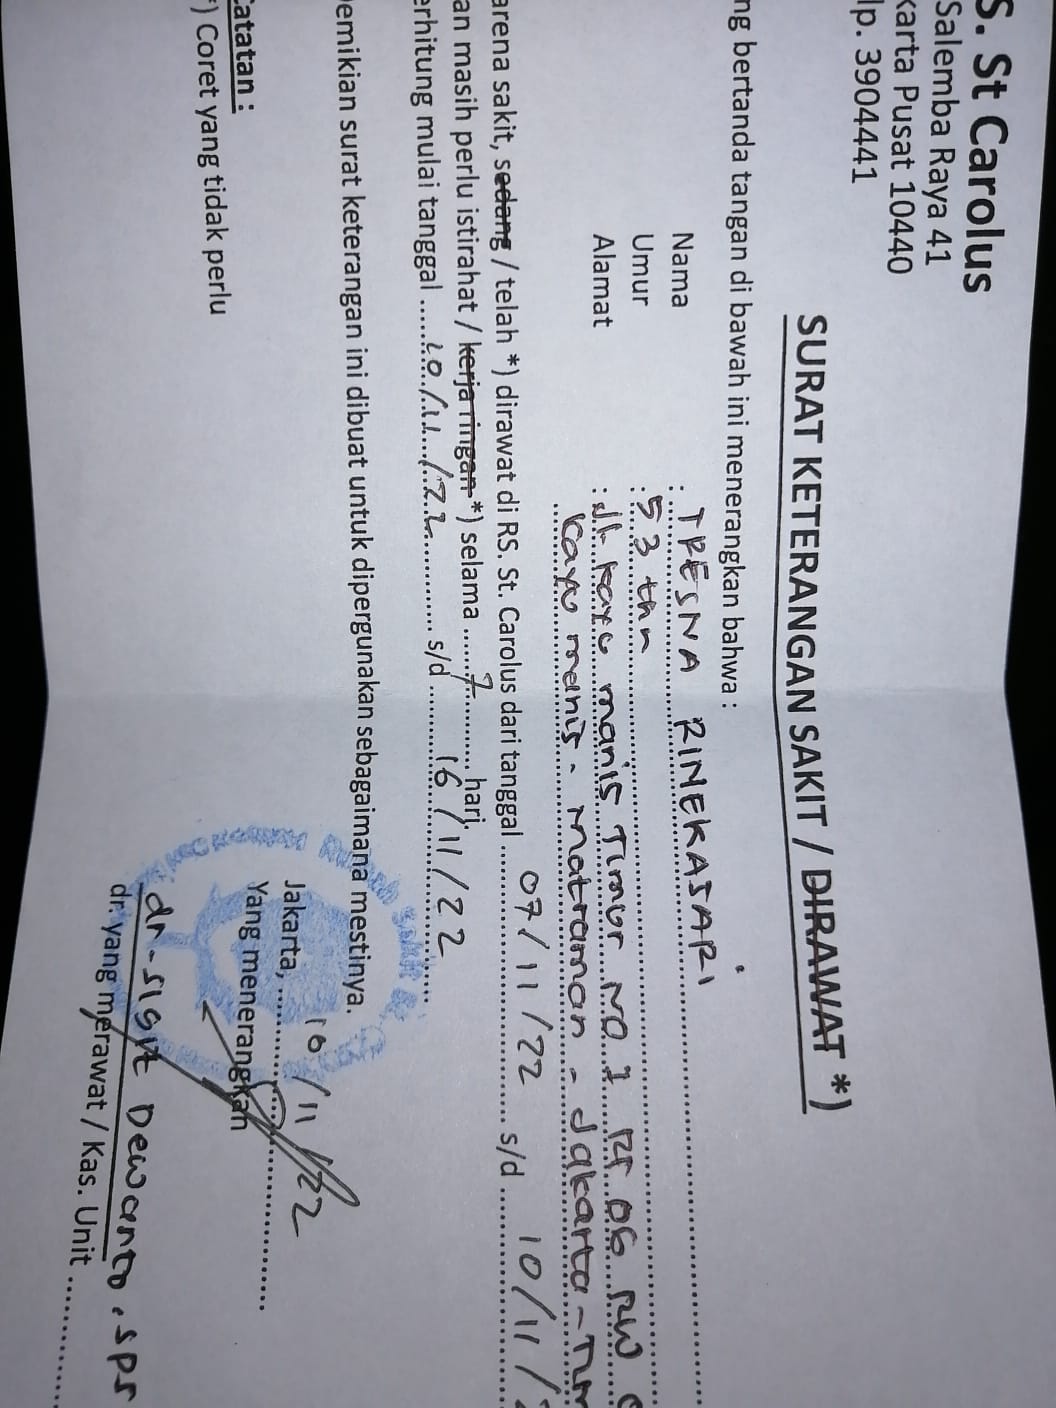 S. St Carolus
Salemba Raya 41
karta Pusat 10440
lp. 3904441
SURAT KETERANGAN SAKIT / DIRAWAT *)
ng bertanda tangan di bawah ini menerangkan bahwa :
Nama : TRESNA RINEKASARI
Umur : 53 thn
Alamat : Jl. kayu manis Timur NO 1 RT 06 RW
kayu manis - matraman - Jakarta - Tim
arena sakit, sedang / telah *) dirawat di RS. St. Carolus dari tanggal 07/11/22 s/d 10/11/
an masih perlu istirahat / kerja ringan *) selama 7 hari.
erhitung mulai tanggal 10/11/22 s/d 16/11/22
emikian surat keterangan ini dibuat untuk dipergunakan sebagaimana mestinya.
Jakarta, 16/11/22
Yang menerangkan
dr. sigit Dewanto. sps
dr. yang merawat / Kas. Unit
Catatan :
*) Coret yang tidak perlu